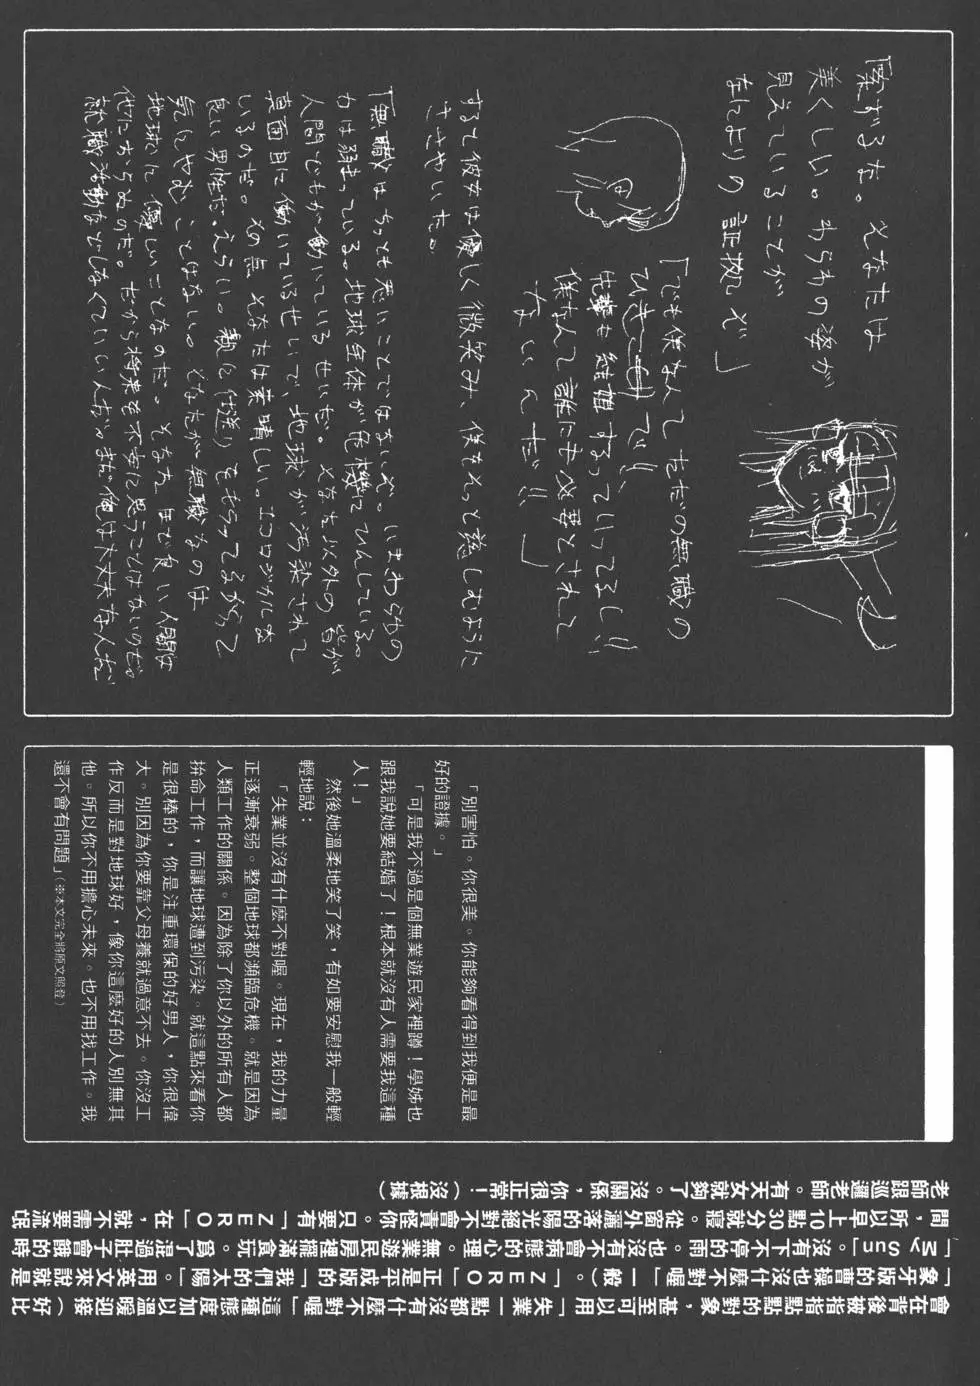 「案ずるな。そなたは
美くしい。わらわの姿が
見えていることが
なによりの証拠ぞ」
「でも僕なんてただの無職の
ひきこもりで!!
先輩も結婚するっていってるし!!
僕なんて誰にも必要とされて
ないんだ!!」
すると彼女は優しく微笑み、僕をそっと慈しむように
ささやいた。
「無職はちっとも悪いことではないぞ。いまわらわの
力は弱まっている。地球全体が危機にひんしている。
人間どもが働いているせいだ。そなた以外の皆が
真面目に働いているせいで、地球が汚染されて
いるのだ。その点そなたは素晴しい。エコロジカルな
良い男性だ。えらい。親に仕送りをもらってるからって
気にやむことはない。そなたが無職なのは
地球に優しいことなのだ。そなたほど良い人間は
他におらぬのだ。だから将来を不安に思うことはないのだ。
就職活動などしなくていい
「別害怕。你很美。你能夠看得到我便是最
好的證據。」
「可是我不過是個無業遊民家裡蹲！學姊也
跟我說她要結婚了！根本就沒有人需要我這種
人！」
然後她溫柔地笑了笑，有如要安慰我一般輕
輕地說：
「失業並沒有什麼不對喔。現在，我的力量
正逐漸衰弱。整個地球都瀕臨危機。就是因為
人類工作的關係。因為除了你以外的所有人都
拚命工作，而讓地球遭到污染。就這點來看你
是很棒的，你是注重環保的好男人，你很偉
大。別因為你要靠父母養就過意不去。你沒工
作反而是對地球好，像你這麼好的人別無其
他。所以你不用擔心未來。也不用找工作。我
還不會有問題」（※本文完全將原文照登）
會在背後被指指點點的對象，甚至可以用「失業一點都沒有什麼不對喔」這種態度加以溫暖迎接（好比
「象牙版的曹操也沒什麼不對喔」一般）。「ZERO」正是平成版的「我們的太陽」。用英文來說就是
「My Sun」。沒有下不停的雨。也沒有不會病態的心理。無業遊民房裡擺滿食玩。為了混過肚子會餓的時
間，所以早上10點30分就寢。從窗外灑落的陽光絕對不會責怪你。只要有「ZERO」在，就不需要流氓
老師跟巡邏老師。有天女就夠了。沒關係，你很正常！（沒根據）